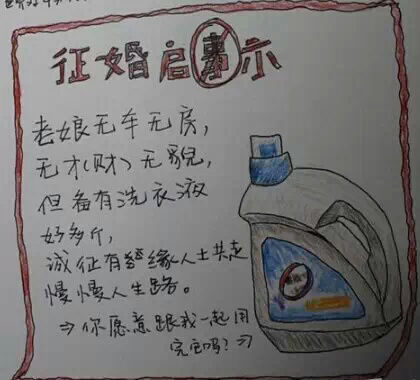 征婚启事示
老娘无车无房,
无才(财)无貌,
但备有洗衣液
好多斤,
诚征有缘人士共走
慢慢人生路。
⇒你愿意跟我一起用
完它吗?⇒